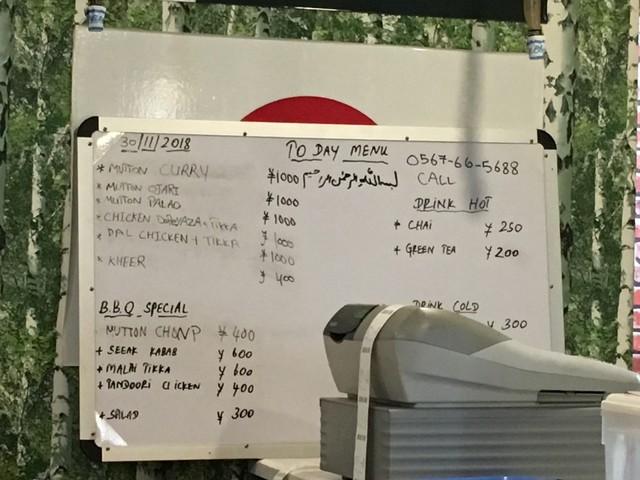 30/11/2018
TO DAY MENU
0567-66-5688
CALL
* MUTTON CURRY ¥1000
بسم الله الرحمن الرحیم
* MUTTON OJARI ¥1000
* MUTTON PALAO ¥1000
* CHICKEN + TIKKA ¥1000
* DAL CHICKEN + TIKKA ¥1000
* KHEER ¥400
B.B.Q SPECIAL
MUTTON CHONP ¥400
+ SEEAK KABAB ¥600
* MALAI TIKKA ¥600
+ TANDOORI CLICKEN ¥400
+ SALAD ¥300
DRINK HOT
* CHAI ¥250
+ GREEN TEA ¥200
DRINK COLD
¥300